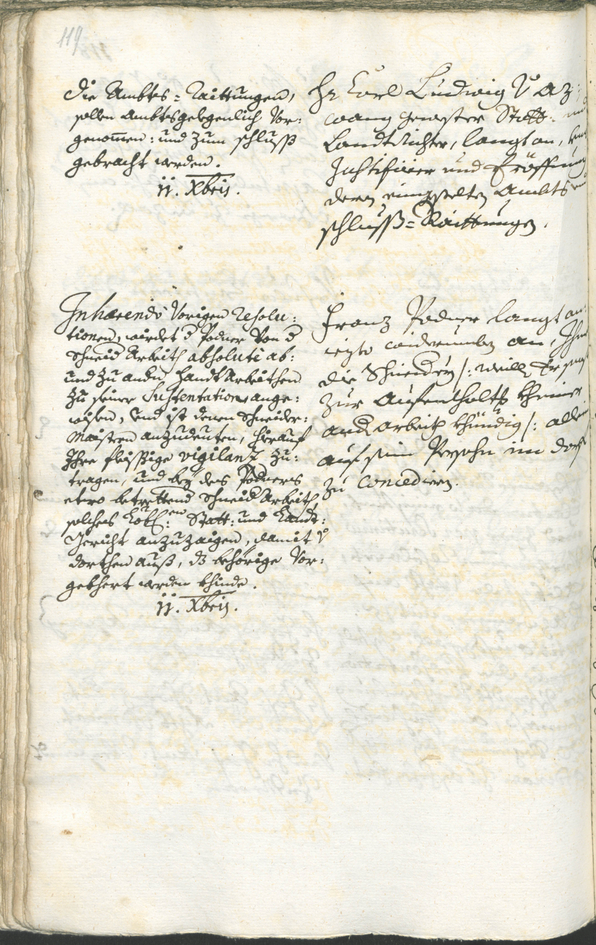 119
Die Ambts=Raittungen,
sollen Ambtsgelegenlich Vor:
genommen: und zum schluß
gebracht werden.
11. Xbris.
Hr Carl Ludwig V
gewester Statt: und
Landtrichter, langt an,
Justificier und Eröffnung
deren eingestelten Ambts
schluß=Raittungen.
Inhærendo Vorigen resolu:
tionen, würdet d Podner Von d
Schneid Arbeith absolutè ab:
und zu andern handt Arbeithen
zu seiner Sustentation ange:
wisen, und ist denen Schneider:
Maistern anzudeuten, hierauf
Ihre fleissige vigilanz zu:
tragen, und bey des Podners
etwo betrettend Schneid Arbeith
solches Statt: und Landt:
Gericht anzuzaigen, damit
dorthen auß, dz behörige Vor:
gekhert werden khinde.
11. Xbris.
Franz Podner langt an
an, Ihm
die Schneidery /: weill Er
zur Aufenthalts kheiner
arbeith khündig :/ allein
auf sein Persohn im dorf
zu concediern.